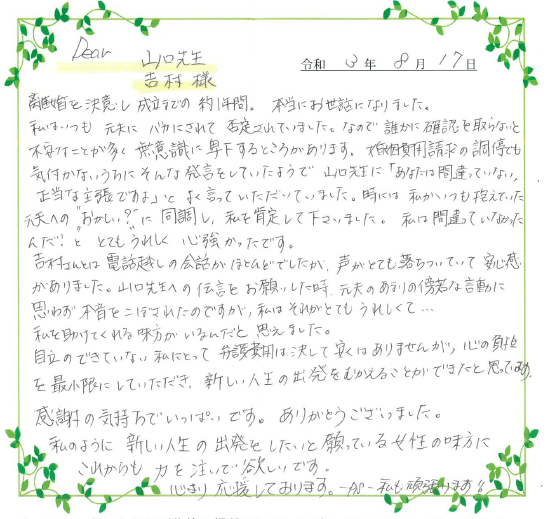 Dear 山口先生
吉村様
令和 3年 8月 17日
離婚を決意し成立までの約1年間。本当にお世話になりました。
私はいつも元夫にバカにされて否定されていました。なので誰かに確認を取らないと
不安なことが多く無意識に卑下するところがあります。婚姻費用請求の調停でも
気付かないうちにそんな発言をしていたようで山口先生に「あなたは間違っていない,
正当な主張ですよ」とよく言っていただいていました。時には私がいつも抱えていた
元夫への"おかしい?"に同調し,私を肯定して下さいました。私は間違っていなかった
んだ!ととてもうれしく心強かったです。
吉村さんとは電話越しの会話がほとんどでしたが,声がとても落ちついていて安心感
がありました。山口先生への伝言をお願いした時,元夫のあまりの傍若な言動に
思わず本音をこぼされたのですが,私はそれがとてもうれしくて…
私を助けてくれる味方がいるんだと思えました。
自立のできていない私にとって弁護費用は決して安くはありませんが,心の負担
を最小限にしていただき,新しい人生の出発をむかえることができたと思っています。
感謝の気持ちでいっぱいです。ありがとうございました。
私のように新しい人生の出発をしたいと願っている女性の味方に
これからも力を注いで欲しいです。
心より応援しております。-PS-私も頑張ります!!